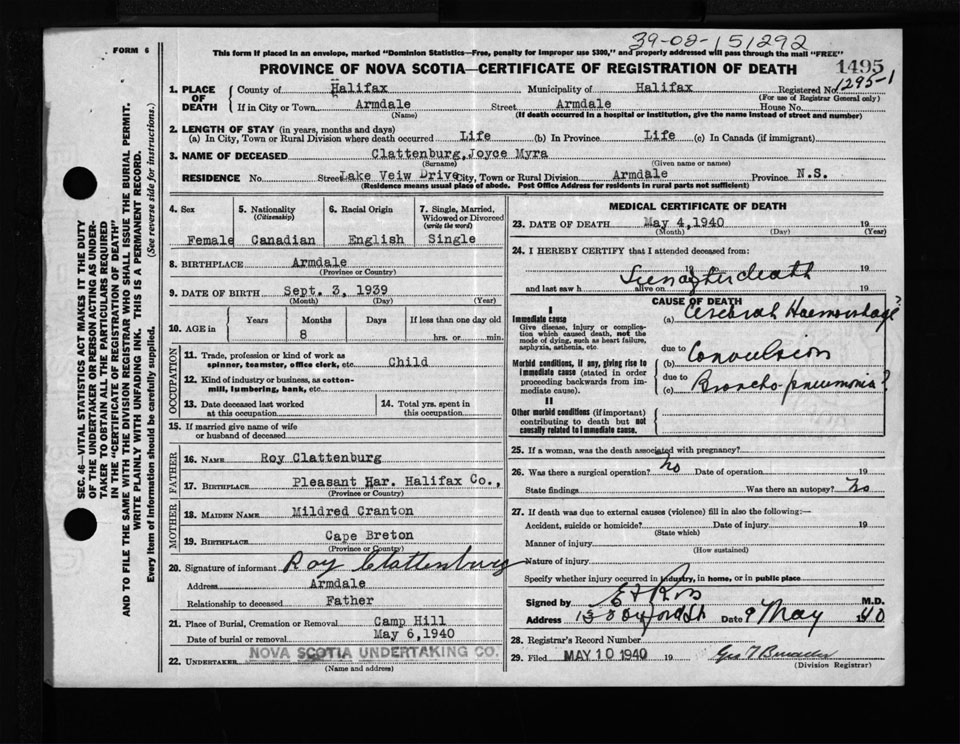 39-08-151292
FORM 6
This form if placed in an envelope, marked "Dominion Statistics—Free, penalty for improper use $300," and properly addressed will pass through the mail "FREE"
PROVINCE OF NOVA SCOTIA—CERTIFICATE OF REGISTRATION OF DEATH
1495
1. PLACE OF DEATH
County of Halifax Municipality of Halifax Registered No. 1295-1
(For use of Registrar General only)
If in City or Town. Armdale Street Armdale House No.
(Name) (If death occurred in a hospital or institution, give the name instead of street and number)
2. LENGTH OF STAY (in years, months and days)
(a) In City, Town or Rural Division where death occurred Life (b) In Province Life (c) In Canada (if immigrant)
3. NAME OF DECEASED Clattenburg, Joyce Myra
(Surname) (Given name or names)
RESIDENCE No. Street Lake Veiw Drive City, Town or Rural Division Armdale Province N.S.
(Residence means usual place of abode. Post Office Address for residents in rural parts not sufficient)
4. Sex
Female
5. Nationality (Citizenship)
Canadian
6. Racial Origin
English
7. Single, Married, Widowed or Divorced (write the word)
Single
8. BIRTHPLACE Armdale
(Province or Country)
9. DATE OF BIRTH Sept. 3, 1939
(Month) (Day) (Year)
10. AGE in
Years Months Days If less than one day old
8 hrs. or min.
OCCUPATION
11. Trade, profession or kind of work as spinner, teamster, office clerk, etc. Child
12. Kind of industry or business, as cotton-mill, lumbering, bank, etc.
13. Date deceased last worked at this occupation
14. Total yrs. spent in this occupation
15. If married give name of wife or husband of deceased
FATHER
16. NAME Roy Clattenburg
17. BIRTHPLACE Pleasant Har. Halifax Co.,
(Province or Country)
MOTHER
18. MAIDEN NAME Mildred Cranton
19. BIRTHPLACE Cape Breton
(Province or Country)
20. Signature of informant Roy Clattenburg
Address Armdale
Relationship to deceased Father
21. Place of Burial, Cremation or Removal Camp Hill
Date of burial or removal May 6, 1940
22. UNDERTAKER NOVA SCOTIA UNDERTAKING CO.
(Name and address)
MEDICAL CERTIFICATE OF DEATH
23. DATE OF DEATH May 4, 1940 19
(Month) (Day) (Year)
24. I HEREBY CERTIFY that I attended deceased from:
19 19
Seen after death
and last saw h alive on 19
CAUSE OF DEATH
I
Immediate cause
Give disease, injury or complication which caused death, not the mode of dying, such as heart failure, asphyxia, asthenia, etc.
(a) Cerebral Haemorrhage?
due to
Morbid conditions, if any, giving rise to immediate cause (stated in order proceeding backwards from immediate cause).
(b) Convulsion
due to
(c) Broncho-pneumonia?
II
Other morbid conditions (if important) contributing to death but not causally related to immediate cause.
25. If a woman, was the death associated with pregnancy?
26. Was there a surgical operation? No Date of operation 19
State findings Was there an autopsy? No
27. If death was due to external causes (violence) fill in also the following:—
Accident, suicide or homicide? Date of injury 19
(State which)
Manner of injury
(How sustained)
Nature of injury
Specify whether injury occurred in industry, in home, or in public place
Signed by M.D.
Address Date 9 May 1940
28. Registrar's Record Number
29. Filed MAY 10 1940 19
(Division Registrar)
SEC. 46—VITAL STATISTICS ACT MAKES IT THE DUTY
OF THE UNDERTAKER OR PERSON ACTING AS UNDER-
TAKER TO OBTAIN ALL THE PARTICULARS REQUIRED
IN THE "CERTIFICATE OF REGISTRATION OF DEATH"
AND TO FILE THE SAME WITH THE DIVISION REGISTRAR WHO SHALL ISSUE THE BURIAL PERMIT.
WRITE PLAINLY WITH UNFADING INK. THIS IS A PERMANENT RECORD.
Every item of Information should be carefully supplied. (See reverse side for instructions.)